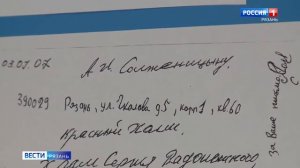 РОССИЯ
РЯЗАНЬ
03.07.07
А. И. Солженицыну.
390029
Рязань, ул. Чкалова д5, корп1, кв.60
Красный Холм.
Сергия Радонежского
за Ваше письмо
ВЕСТИ РЯЗАНЬ